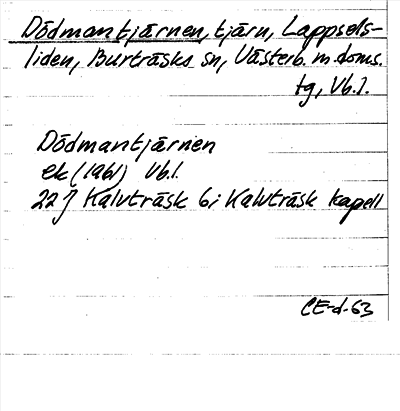 Dödmantjärnen, tjärn, Lappsels-
liden, Burträsks sn, Västerb. m. doms.
tg, Vb.l.
Dödmantjärnen
ek (1961) Vb.l.
22 J Kalvträsk 6; Kalvträsk kapell
CE-d-63